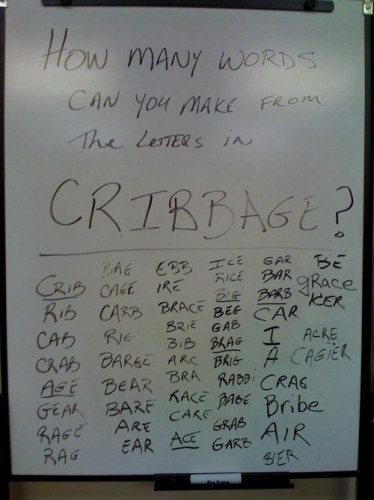 HOW MANY WORDS
CAN YOU MAKE FROM
The LETTERS in
CRIBBAGE?
CRIB
RIB
CAB
CRAB
AGE
GEAR
RAGE
RAG
BAG
CAGE
CARB
RIG
BARGE
BEAR
BARE
ARE
EAR
EBB
IRE
BRACE
BRIE
BIB
ARC
BRA
RACE
CARE
ACE
ICE
RICE
BIG
BEG
GAB
BRAG
BRIG
RABBI
BABE
GRAB
GARB
GAR
BAR
BARB
CAR
I
A
CRAG
Bribe
AIR
BIER
BE
gRace
ICER
ACRE
CAGIER